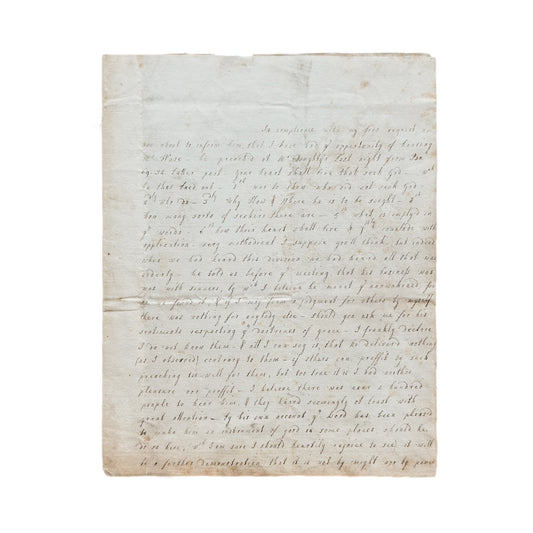 In compliance with my first request
about to inform him, that I have had y opportunity of hearing
Mr Hare - he preached at Mr last night from
latter part your heart shall live that seek God -
he thus laid out - 1st to shew who did not seek God
2dly who do - 3dly Why How & Where he is to be sought -
how many sorts of seekers there are - 5th what is implyd in
ye words - 6th how their heart shall live & 7thly conclude with
application - very methodical I suppose you'll think, but indeed
when we had heard this division we had heard all that was
orderly - he told us before ye meeting that his business was
not with sinners, by wch I believe he meant
form a judgment for others by myself
there was nothing for any body else - should you ask me for his
sentiments respecting ye doctrines of grace - I frankly declare
I do not know them - & all I can say is that he delivered nothing
(as I observed) contrary to them - if others can proffit by such
preaching tis well for them, but too true it is I had neither
pleasure nor proffit - I believe there was near a hundred
people to hear him, & they heard seemingly at least with
great attention - by his own account ye Lord has been pleased
to make him an instrument of good in some places should he
do so here, wch I'm sure I should heartily rejoice to see, it will
be a further demonstration that it is not by might nor by power